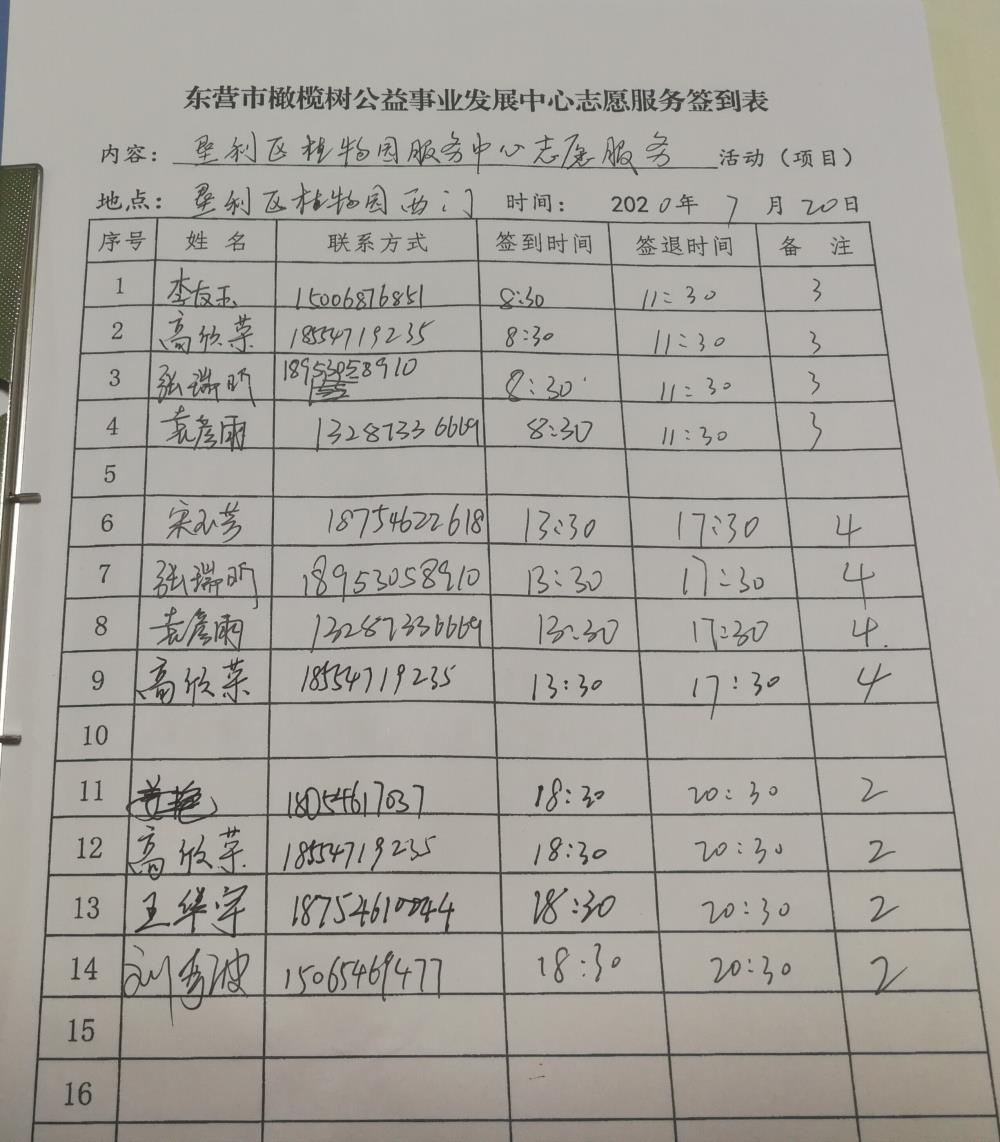 东营市橄榄树公益事业发展中心志愿服务签到表
内容：垦利区植物园服务中心志愿服务 活动（项目）
地点：垦利区植物园西门 时间： 2020年 7 月 20日
序号 姓名 联系方式 签到时间 签退时间 备 注
1 李友玉 15006876851 8:30 11:30 3
2 高欣荣 18554719235 8:30 11:30 3
3 张瑞昕 18953058910 8:30 11:30 3
4 袁彦雨 13287336669 8:30 11:30 3
5
6 宋玉芳 18754622618 13:30 17:30 4
7 张瑞昕 18953058910 13:30 17:30 4
8 袁彦雨 13287336669 13:30 17:30 4
9 高欣荣 18554719235 13:30 17:30 4
10
11 18054617037 18:30 20:30 2
12 高欣荣 18554719235 18:30 20:30 2
13 王华军 18754610044 18:30 20:30 2
14 刘秀波 15065469477 18:30 20:30 2
15
16